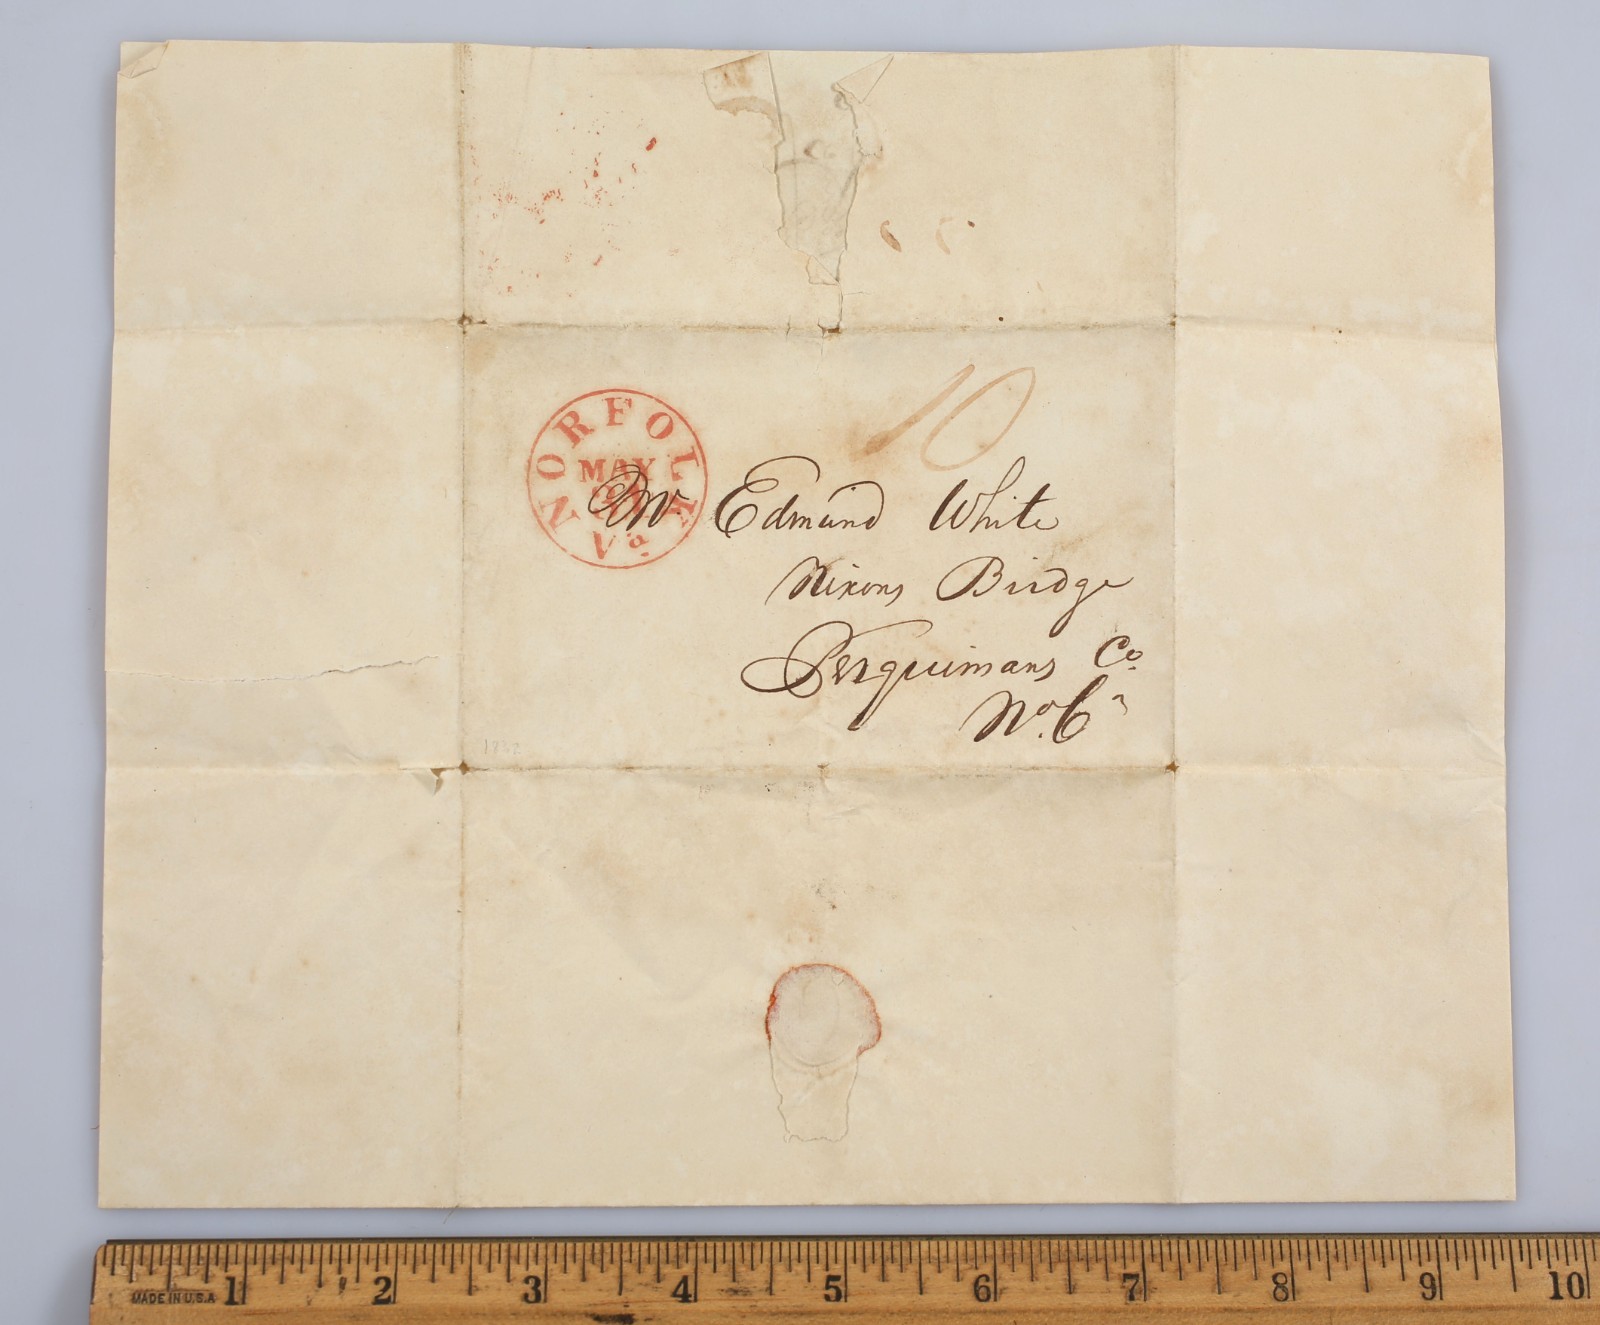 10
NORFOLK
MAY
Va.
Mr. Edmund White
Nixons Bridge
Perquimans Co.
No. Ca
MADE IN U.S.A
1 2 3 4 5 6 7 8 9 10